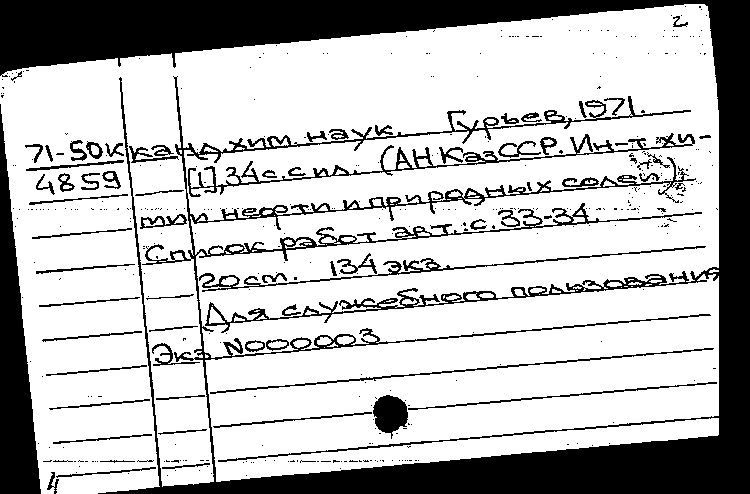 2
71-50К канд. хим. наук. Гурьев, 1971.
4859 [1], 34 с. с ил. (АН КазССР. Ин-т хи-
мии нефти и природных солей)
Список работ авт.: с. 33-34.
20 см. 134 экз.
Для служебного пользования
Экз N000003
4